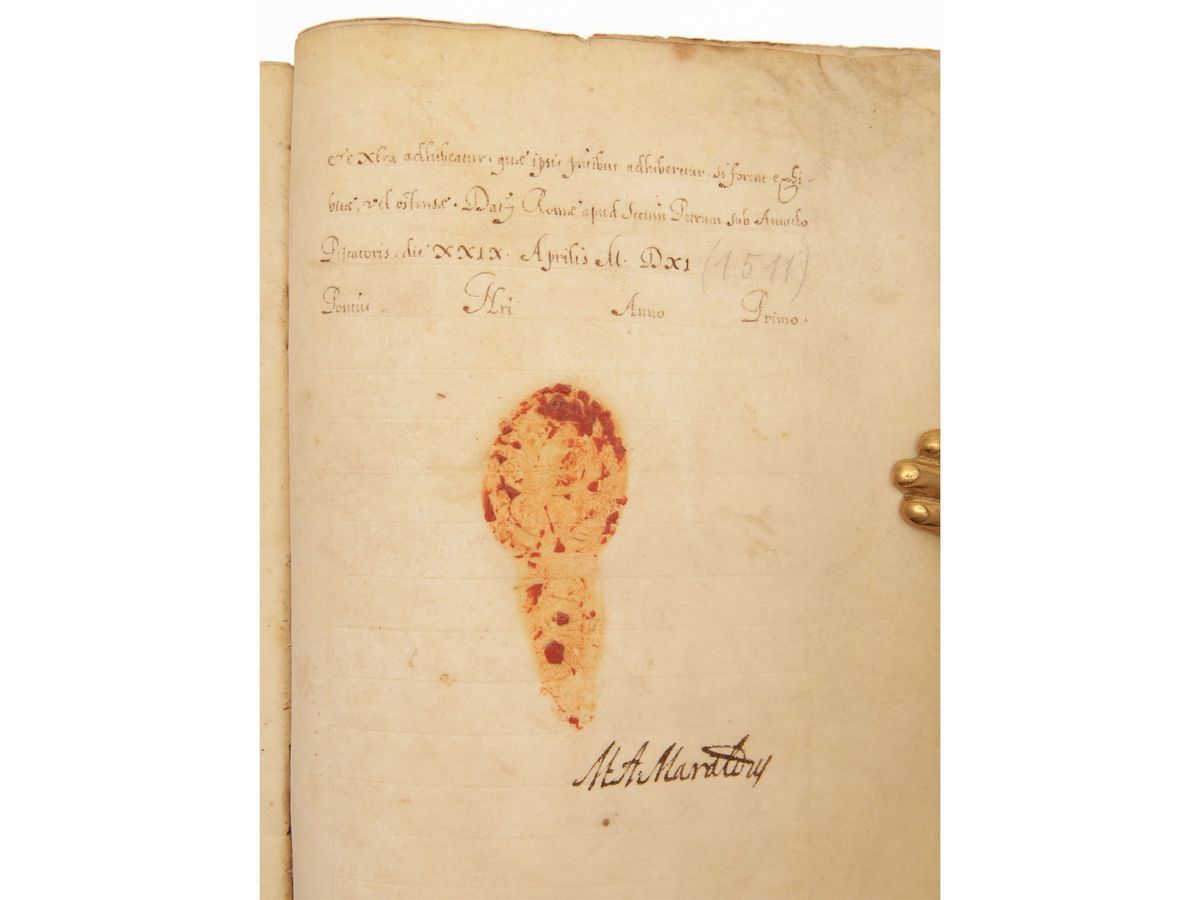 & extra adhibeatur, quæ ipsis pñtibus adhiberetur, si forent exhi-
bitæ, vel ostensæ. Datȝ Romæ apud Sctum Petrum sub Annulo
Piscatoris, die XXIX. Aprilis M. DXI (1511)
Pontus Nri Anno Primo.
M. A. Maraldus